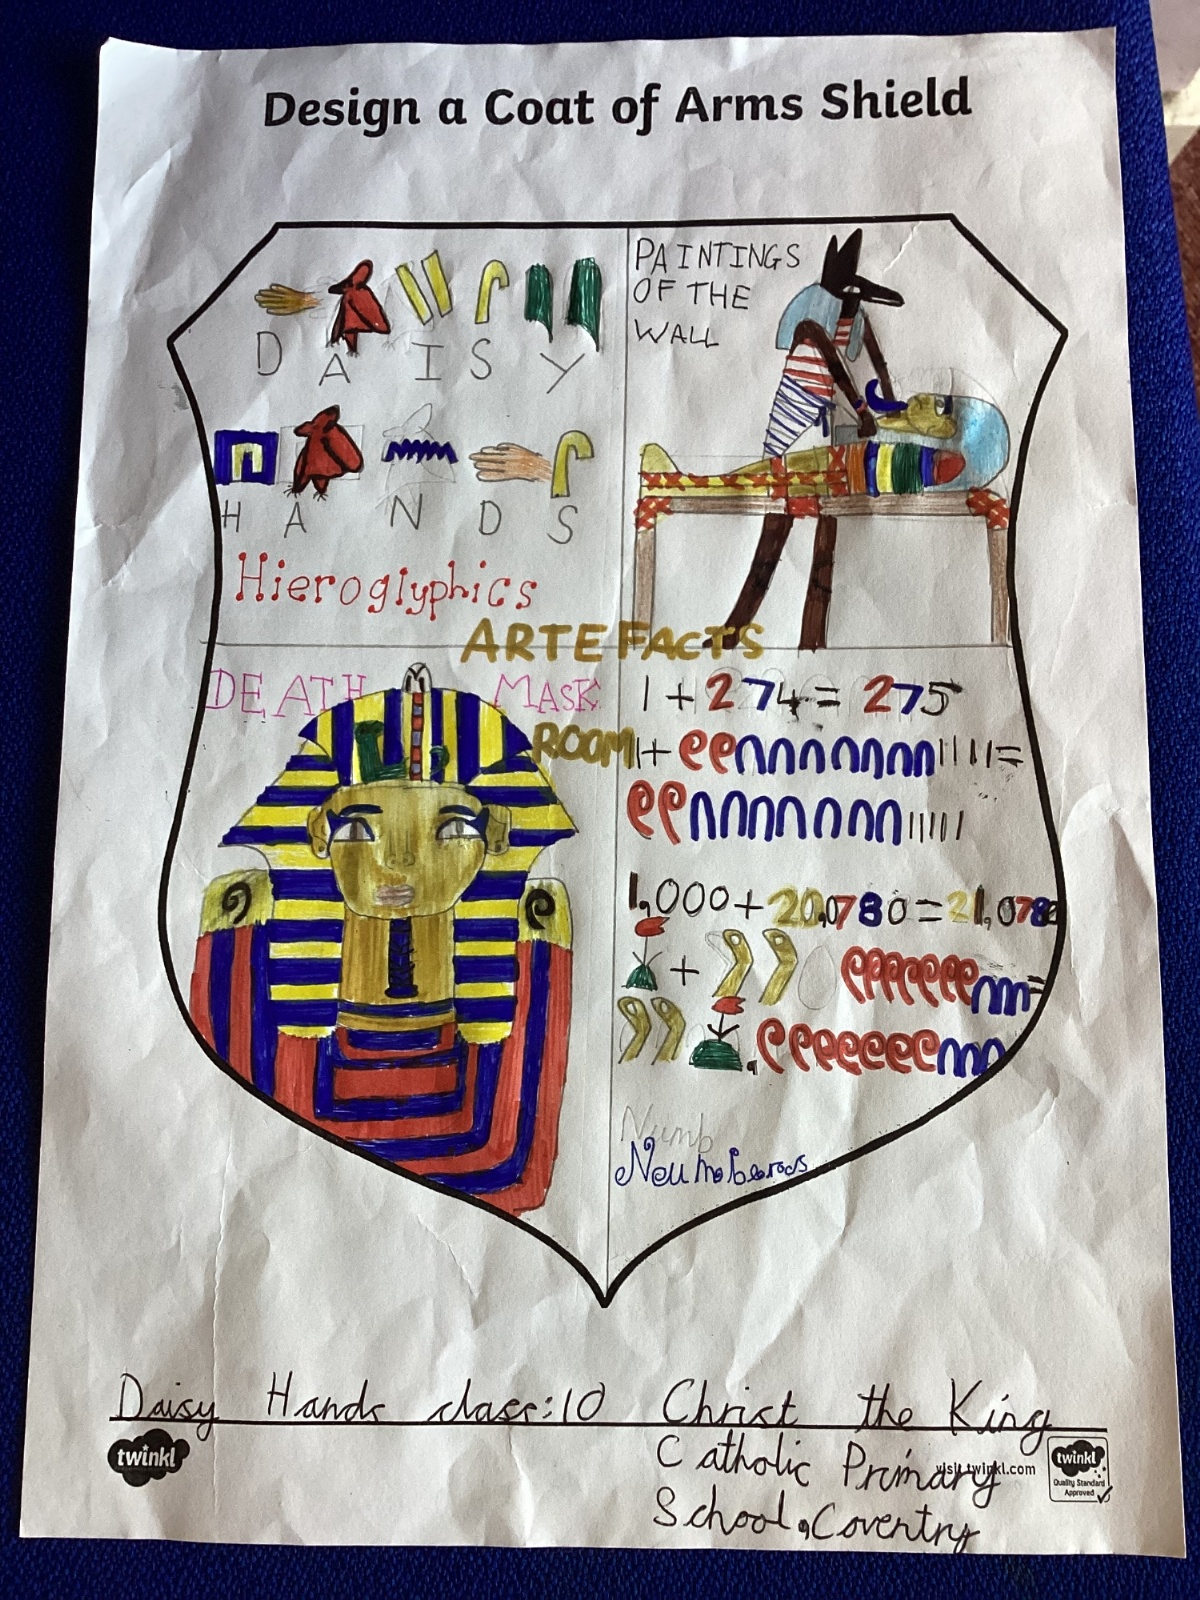 Design a Coat of Arms Shield
D A I S Y
H A N D S
Hieroglyphics
PAINTINGS
OF THE
WALL
ARTEFACTS
ROOM
DEATH MASK
1 + 274 = 275
1,000 + 20,0780 = 21,0780
Numb
Neumberocs
Daisy Hands class:10 Christ the King
Catholic Primary
School, Coventry
twinkl
visit twinkl.com
twinkl
Quality Standard
Approved